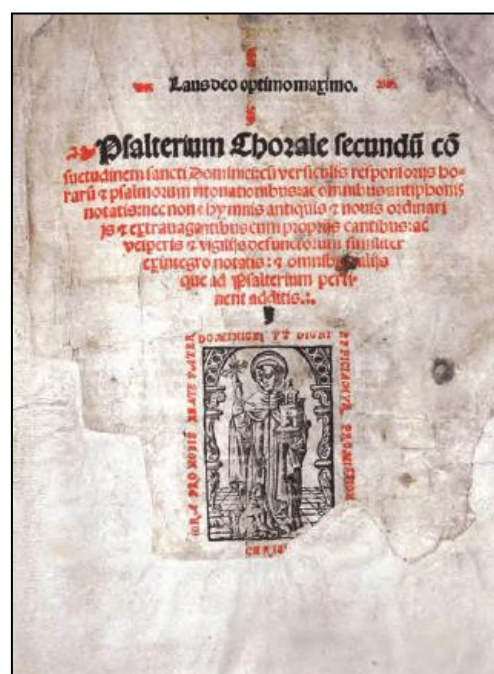 Laus deo optimo maximo.
Psalterium Chorale secundũ cõ
suetudinem sancti Dominici: cũ versiculis responsorijs ho-
rarũ ⁊ psalmorum intonationibus: ac omnibus antiphonis
notatis: nec non ⁊ hymnis antiquis ⁊ nouis ordinari
js ⁊ extrauagantibus cum proprijs cantibus: ac
vesperis ⁊ vigilijs defunctorum similiter
ex integro notatis: ⁊ omnibus alijs
que ad Psalterium perti-
nent additis.:.
ORA PRO NOBIS BEATE PATER
DOMINICE: VT DIGNI
EFFICIAMVR PROMISSION
CHRIS